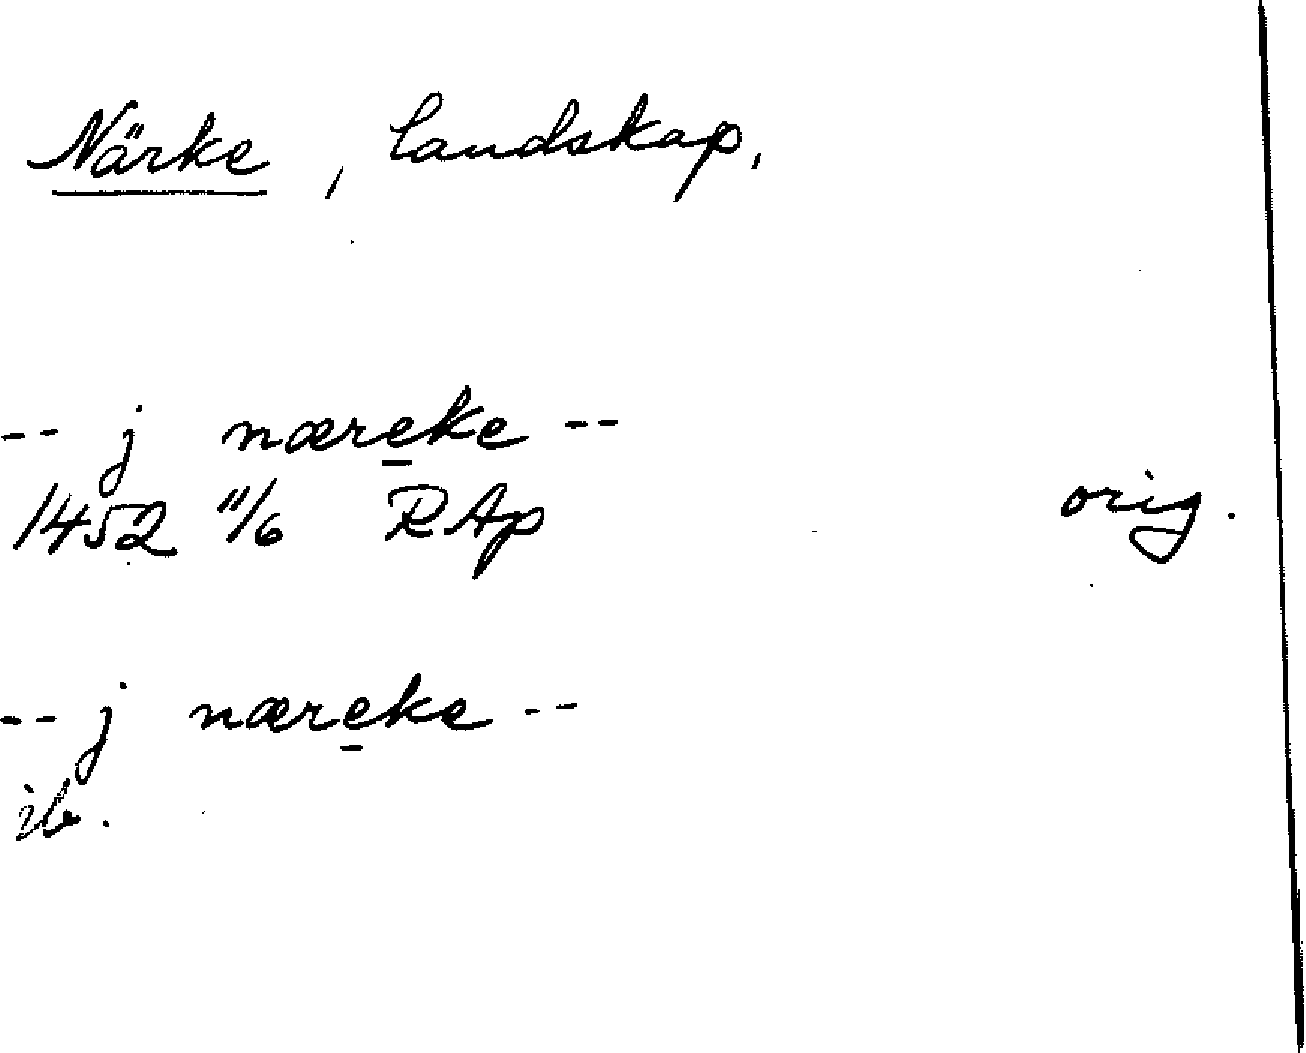 Närke, landskap,
-- j næreke --
1452 11/6 RAp orig.
-- j næreke --
ib.